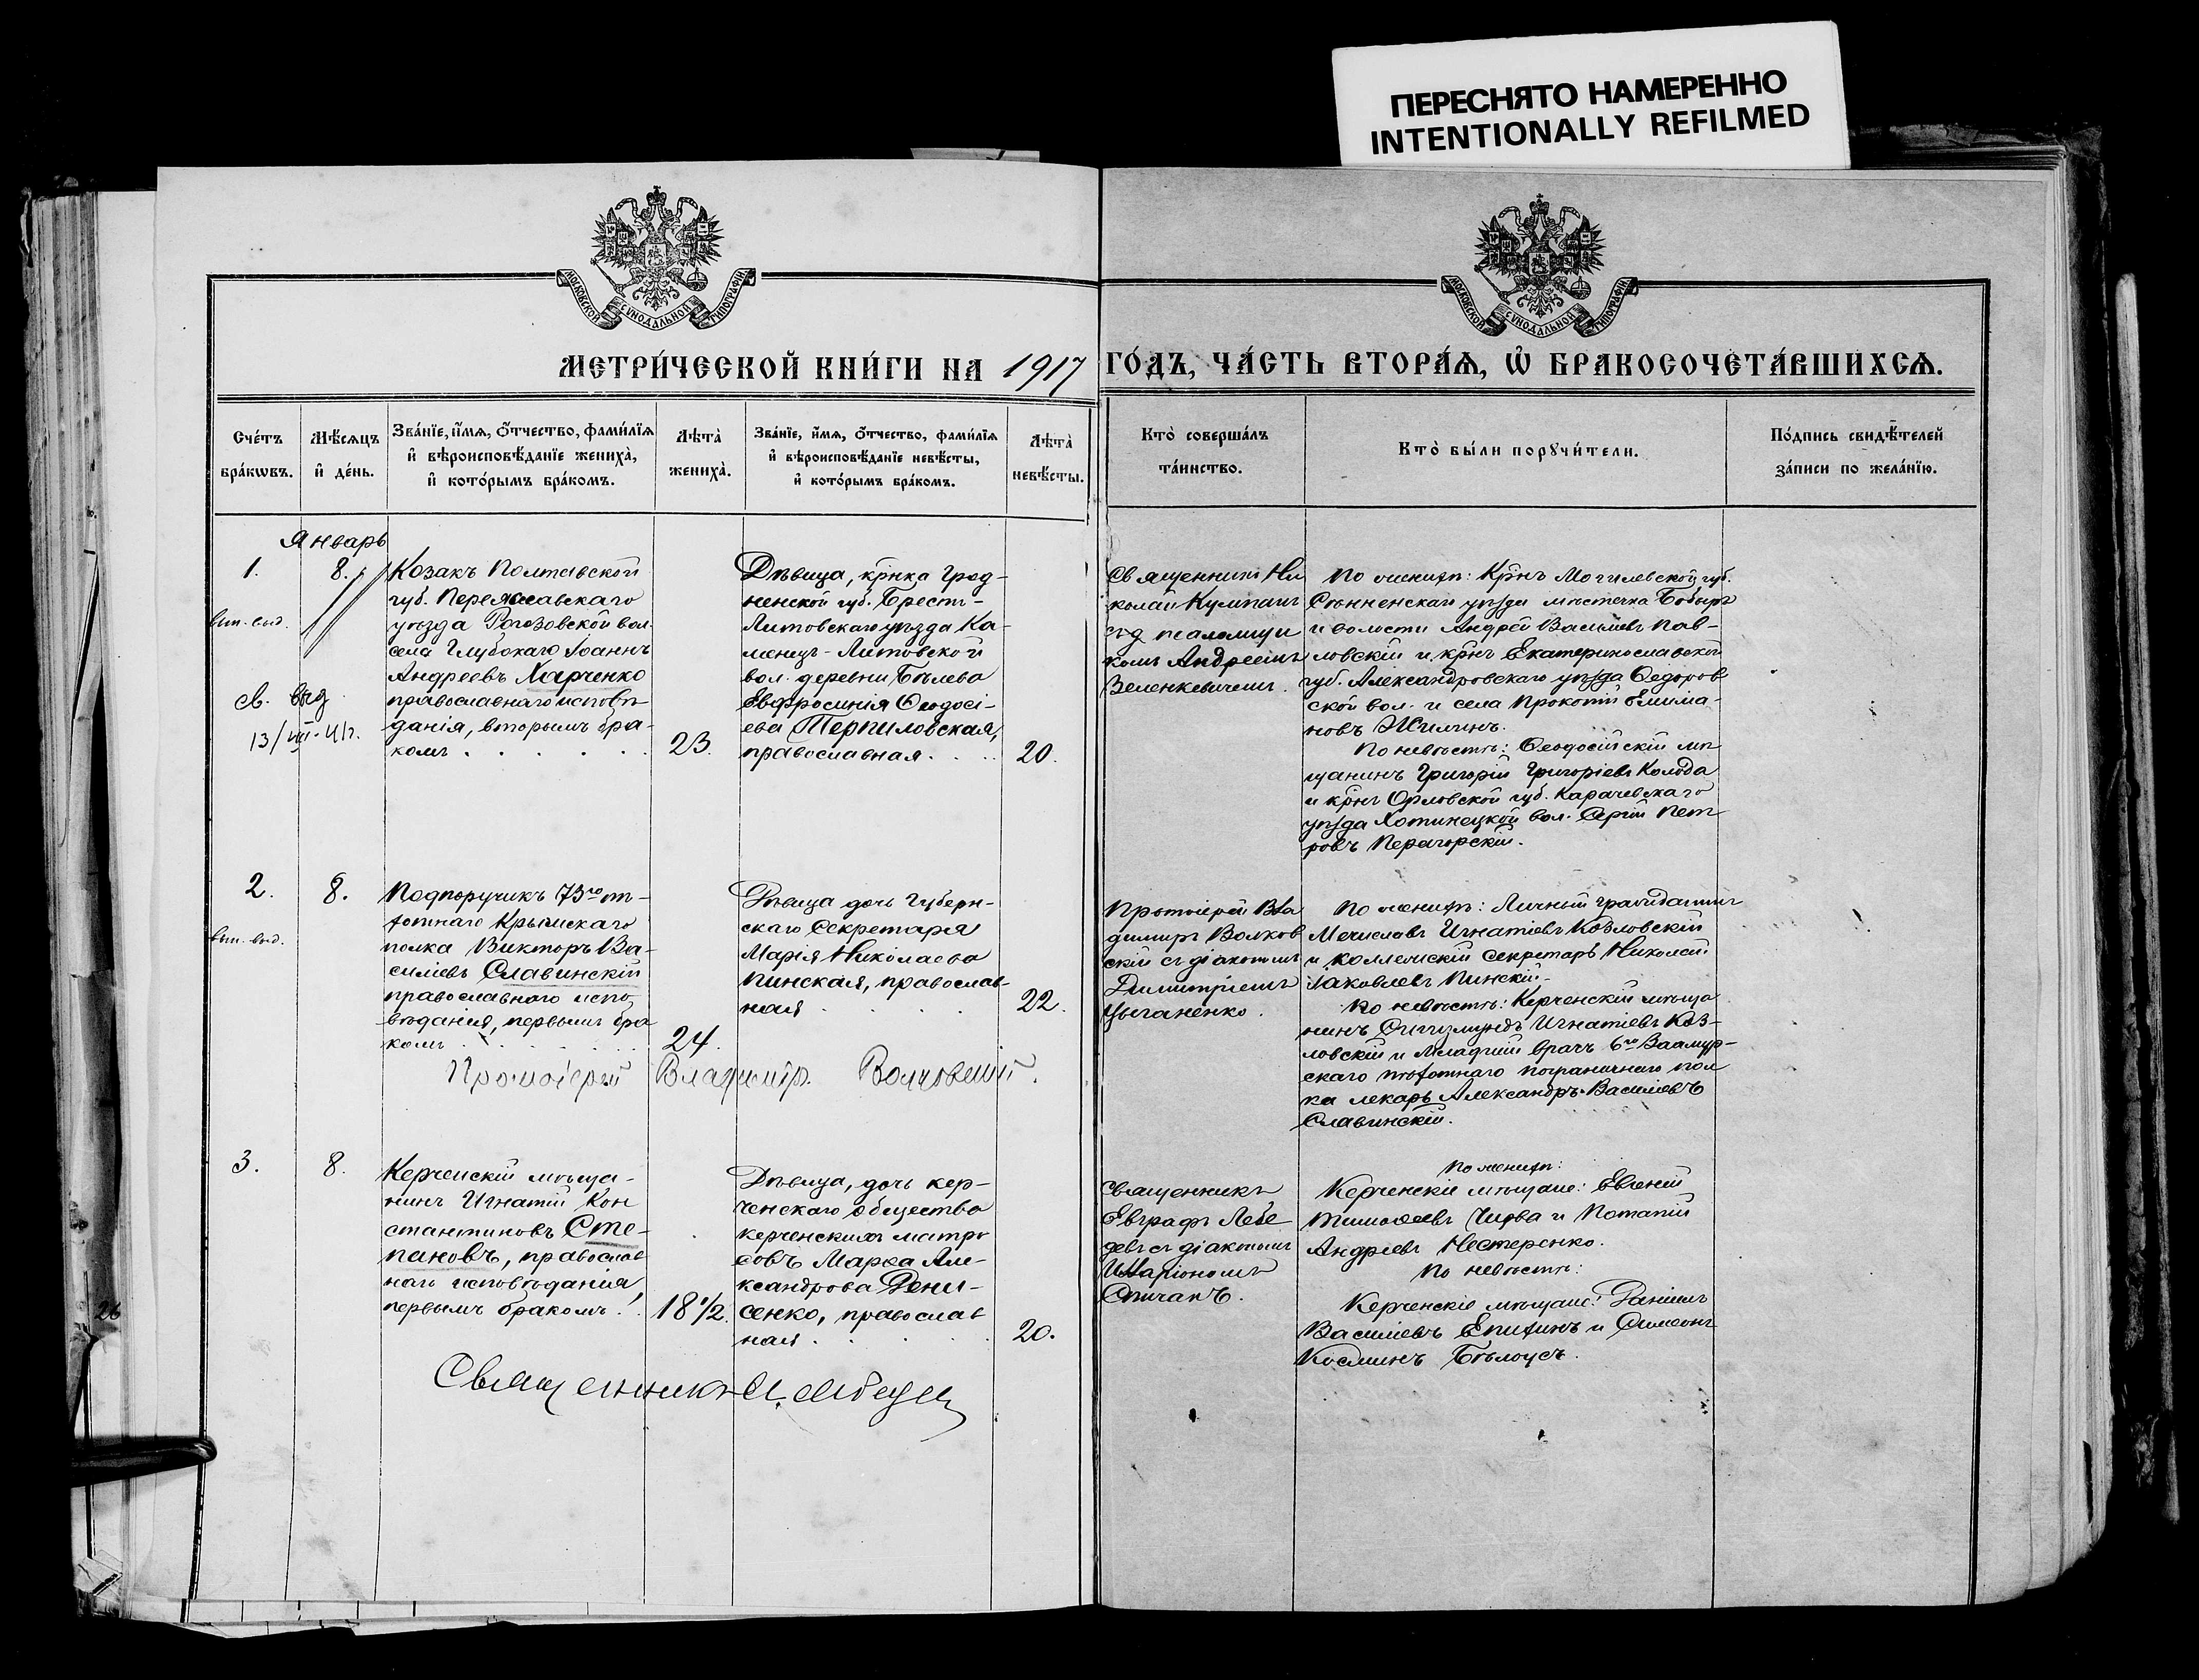 ПЕРЕСНЯТО НАМЕРЕННО
INTENTIONALLY REFILMED
МОСКОВСКОЙ СѴНОДАЛЬНОЙ ТИПОГРАФІИ
МОСКОВСКОЙ СѴНОДАЛЬНОЙ ТИПОГРАФІИ
МЕТРИ́ЧЕСКОЙ КНИ́ГИ НА 1917 ГО́ДЪ, ЧА́СТЬ ВТОРА́Ѧ, Ѡ҆ БРАКОСОЧЕТА́ВШИХСѦ.
Сче́тъ
бра́кѡвъ.
Мѣ́сяцъ
и҆ де́нь.
Зва́нїе, и҆́мѧ, ѻ҆́тчество, фами́лїѧ
и҆ вѣроисповѣ́данїе жениха̀,
и҆ кото́рымъ бра́комъ.
Лѣта̀
жениха̀.
Зва́нїе, и҆́мѧ, ѻ҆́тчество, фами́лїѧ
и҆ вѣроисповѣ́данїе невѣ́сты,
и҆ кото́рымъ бра́комъ.
Лѣта̀
невѣ́сты.
Кто̀ соверша́лъ
та́инство.
Кто̀ бы́ли порꙋчи́тели.
По́дпись свидѣ́телей
за́писи по жела́нїю.
Январь
1.
8.
вып. выд.
св. выд
13/VIII-41г.
Козакъ Полтавской
губ. Переяславскаго
уѣзда Рогозовской вол.
села Глубокаго Іоаннъ
Андреевъ Харченко
православнаго исповѣ-
данія, вторымъ бра-
комъ . . . . . .
23.
Дѣвица, крнка Грод-
ненской губ. Брест-
Литовскаго уѣзда Ка-
менец-Литовской
вол. деревни Бѣлева
Евфросинія Ѳеодосі-
ева Терпиловская,
православная. . . .
20.
Священникъ Ни
колай Кумпанъ
съ псаломщи
комъ Андреемъ
Зеленкевичемъ.
По женихѣ: Крнъ Могилевской губ.
Сѣнненскаго уѣзда мѣстечка Бобыръ
и волости Андрей Василіевъ Пав-
ловскій и крнъ Екатеринославской
губ. Александровскаго уѣзда Ѳедоров
ской вол. и села Прокопій
новъ Жилинъ.
По невѣстѣ: Ѳеодосійскій мѣ
щанинъ Григорій Григоріевъ Колода
и крнъ Орловской губ. Карачевскаго
уѣзда Хотинецкой вол. Сергій Пет
ровъ Перагорскій.
2.
8.
вып. выд.
Подпоручикъ 73го пѣ-
хотнаго Крымскаго
полка Викторъ Ва-
силіевъ Славинскій
православнаго испо-
вѣданія, первымъ бра
комъ . . . . . .
24.
Дѣвица дочь Губерн-
скаго Секретаря
Марія Николаева
Пинская, православ-
ная . . . .
22.
Протоіерей Вла
димиръ Волков
скій съ діакономъ
Димитріемъ
Цыганенко.
По женихѣ: Личный гражданинъ
Мечиславъ Игнатіевъ Козловскій
и коллежскій секретарь Николай
Іаковлевъ Пинскій.
По невѣстѣ: Керченскій мѣща
нинъ Сигизмундъ Игнатіевъ Коз-
ловскій и Младшій врачъ 6го Заамур-
скаго пѣхотнаго пограничнаго пол
ка лекарь Александръ Василіевъ
Славинскій.
Протоіерей Владимір. Волковскій.
3.
8.
Керченскій мѣща-
нинъ Игнатій Кон
стантиновъ Сте-
пановъ, православ
наго исповѣданія,
первымъ бракомъ.
18 1/2.
Дѣвица, дочь кер-
ченскаго общества
керченскихъ матро
совъ Марѳа Але-
ксандрова Дени-
сенко, православ
ная . . . .
20.
Священникъ
Евграфъ Лебе
девъ съ діакономъ
Иларіономъ
Спичакъ.
По женихѣ:
Керченскіе мѣщане: Евгеній
Тимоѳеевъ Чирва и Потапій
Андреевъ Нестеренко.
По невѣстѣ:
Керченскіе мѣщане: Даніилъ
Василіевъ Епихинъ и Симеонъ
Косминъ Бѣлоусъ.
Священникъ
26